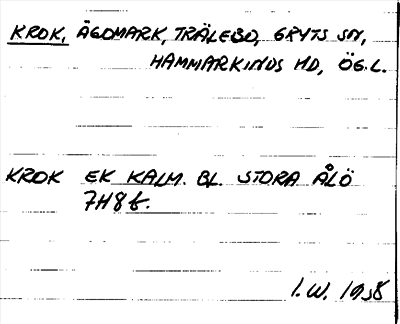 KROK, ÄGOMARK, TRÄLEBO, GRYTS SN,
HAMMARKINDS HD, ÖG.L.
KROK EK KALM. BL. STORA ÅLÖ
7H8f.
I.W. 1958